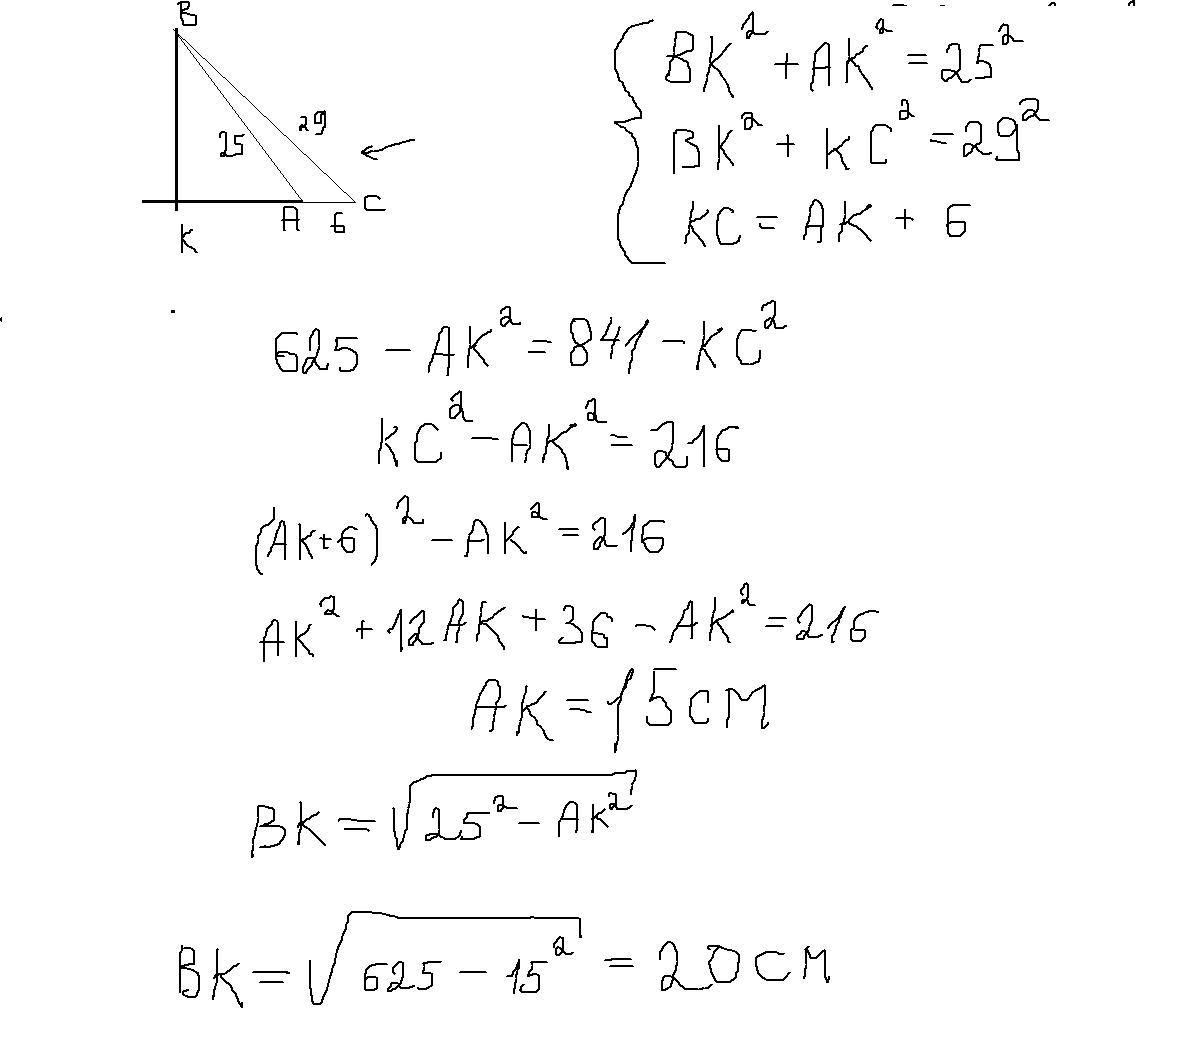 B
25 29
A 6 C
K
BK² + AK² = 25²
BK² + KC² = 29²
KC = AK + 6
625 - AK² = 841 - KC²
KC² - AK² = 216
(AK+6)² - AK² = 216
AK² + 12AK + 36 - AK² = 216
AK = 15 см
BK = √(25² - AK²)
BK = √(625 - 15²) = 20 см